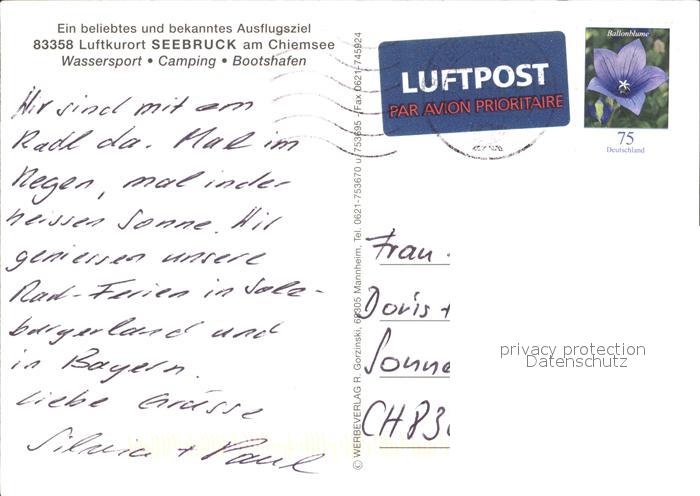 Ein beliebtes und bekanntes Ausflugsziel
83358 Luftkurort SEEBRUCK am Chiemsee
Wassersport • Camping • Bootshafen
Wir sind mit em
Radl da. Mal im
Regen, mal in der
heissen Sonne. Wir
geniessen unsere
Rad-Ferien in Salz-
burgerland und
in Bayern.
Liebe Grüsse
Silvia + Paul
© WERBEVERLAG R. Gorzinski, 68305 Mannheim, Tel. 0621-753670 u. 753695 - Fax 0621-745924
LUFTPOST
PAR AVION PRIORITAIRE
Ballonblume
75
Deutschland
Frau
Doris +
Sonne
CH 83
privacy protection
Datenschutz